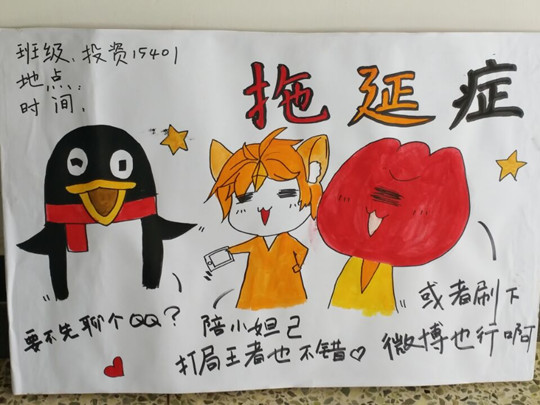 班级：投资15401
地点：
时间：
拖延症
要不先聊个QQ？
陪小妲己
打局王者也不错♡
或者刷下
微博也行啊